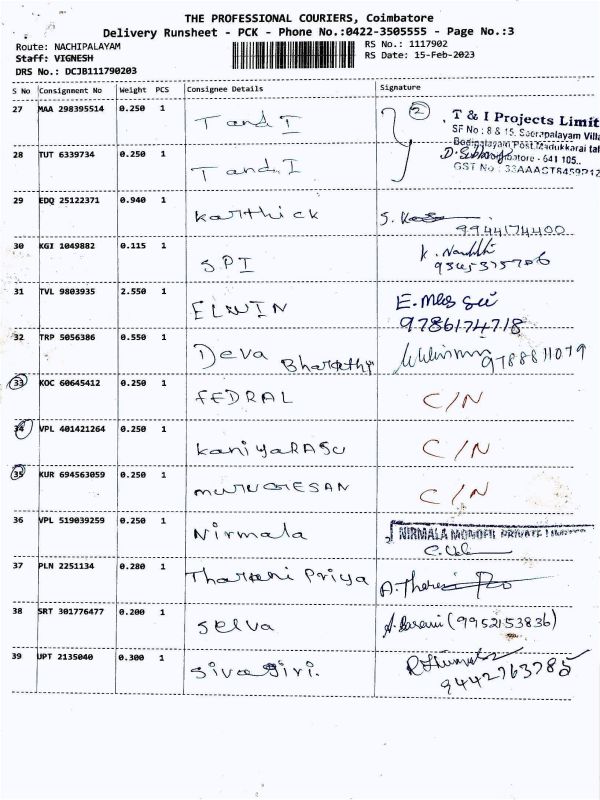 THE PROFESSIONAL COURIERS, Coimbatore
Delivery Runsheet - PCK - Phone No.:0422-3505555 - Page No.:3
Route: NACHIPALAYAM
RS No.: 1117902
Staff: VIGNESH
RS Date: 15-Feb-2023
DRS No.: DCJB111790203
S No Consignment No Weight PCS Consignee Details Signature
27 MAA 298395514 0.250 1 T and I
2
T & I Projects Limit
SF No : 8 & 15, Villa
Post,
- 641 105..
GST No :
28 TUT 6339734 0.250 1 T and. I
29 EDQ 25122371 0.940 1 Karthick
9944174400
30 KGI 1049882 0.115 1 SPI
31 TVL 9803935 2.550 1 ELWIN
9786174718
32 TRP 5056386 0.550 1 Deva Bharathi 9788811079
33 KOC 60645412 0.250 1 FEDRAL C/N
34 VPL 401421264 0.250 1 kaniyaRASu C/N
35 KUR 694563059 0.250 1 muruGESAN C/N
36 VPL 519039259 0.250 1 Nirmala NIRMALA MONOFIL PRIVATE
37 PLN 2251134 0.280 1 Tharani Priya
38 SRT 301776477 0.200 1 selva (9952153836)
39 UPT 2135040 0.300 1 sivagiri.
9442763785